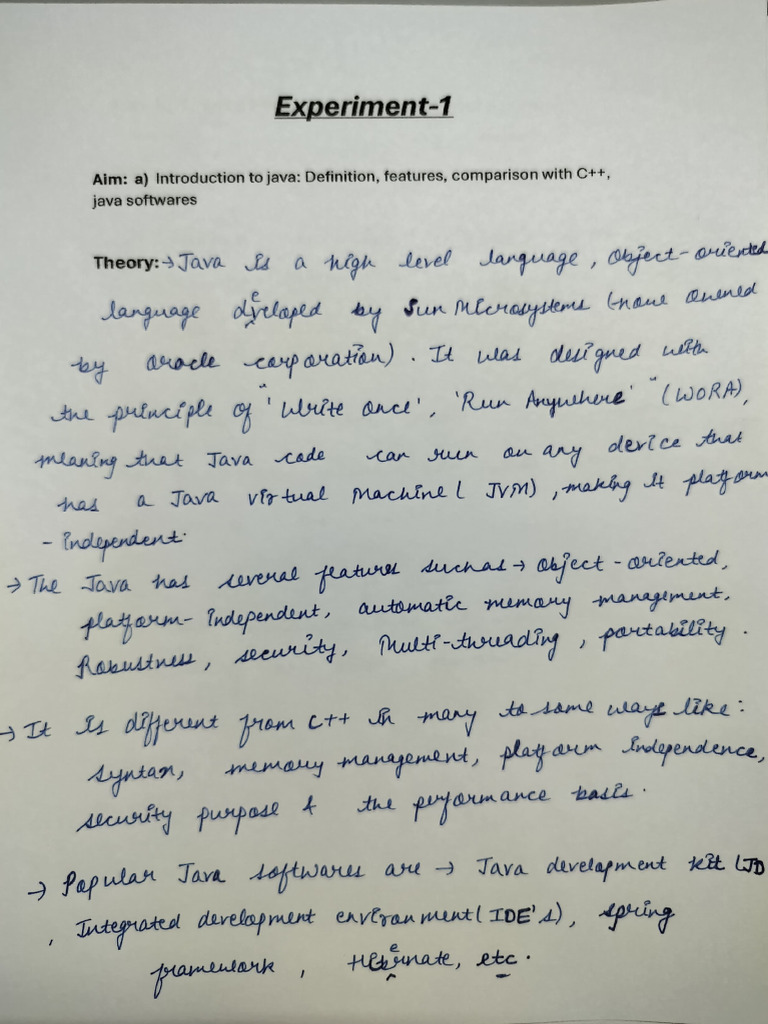 Experiment-1
Aim: a) Introduction to java: Definition, features, comparison with C++,
java softwares
Theory:→Java is a high level language, object-oriented
language developed by Sun Microsystems (now owned
by oracle corporation). It was designed with
the principle of "'Write once', 'Run Anywhere'" (WORA),
meaning that Java code can run on any device that
has a Java virtual Machine( JVM), making it platform
- independent.
→ The Java has several features such as → object - oriented,
platform- independent, automatic memory management,
Robustness, security, Multi-threading, portability.
→ It is different from c++ in many to some ways like:
syntax, memory management, platform independence,
security purpose & the performance basis.
→ Popular Java softwares are → Java development kit (JD
, Integrated development environment( IDE's), spring
framework, Hibernate, etc.